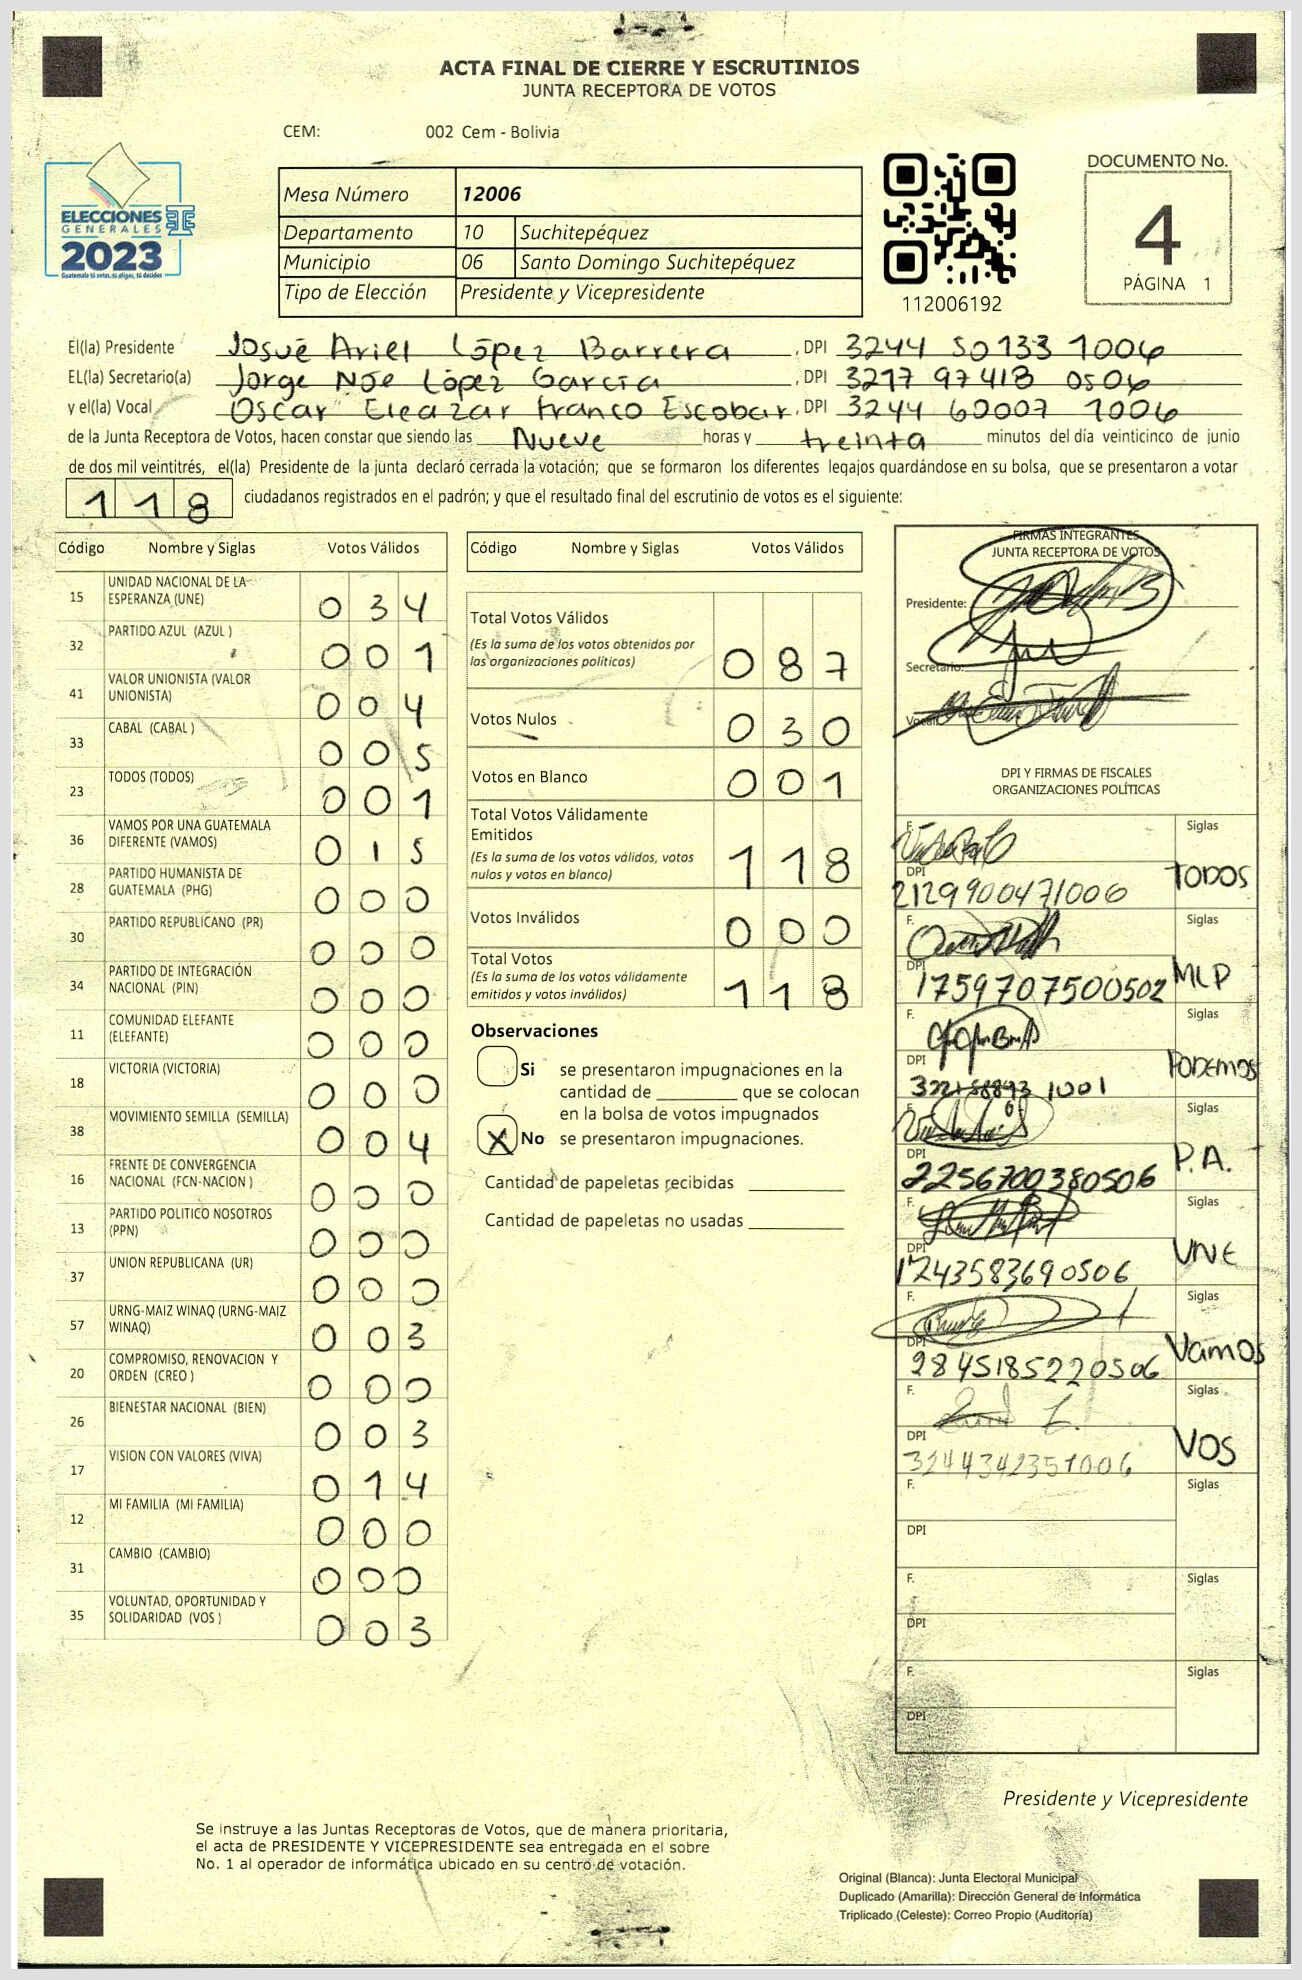 ACTA FINAL DE CIERRE Y ESCRUTINIOS
JUNTA RECEPTORA DE VOTOS
CEM: 002 Cem - Bolivia
ELECCIONES
GENERALES
2023
Guatemala tú votas, tú eliges, tú decides
Mesa Número 12006
Departamento 10 Suchitepéquez
Municipio 06 Santo Domingo Suchitepéquez
Tipo de Elección Presidente y Vicepresidente
112006192
DOCUMENTO No.
4
PÁGINA 1
El(la) Presidente Josué Ariel López Barrera, DPI 3244 50133 1006
EL(la) Secretario(a) Jorge Noe López García, DPI 3217 97418 0506
y el(la) Vocal Oscar Eleazar Franco Escobar, DPI 3244 60007 1006
de la Junta Receptora de Votos, hacen constar que siendo las Nueve horas y treinta minutos del día veinticinco de junio
de dos mil veintitrés, el(la) Presidente de la junta declaró cerrada la votación; que se formaron los diferentes legajos guardándose en su bolsa, que se presentaron a votar
118 ciudadanos registrados en el padrón; y que el resultado final del escrutinio de votos es el siguiente:
Código Nombre y Siglas Votos Válidos
15 UNIDAD NACIONAL DE LA
ESPERANZA (UNE) 034
32 PARTIDO AZUL (AZUL ) 001
41 VALOR UNIONISTA (VALOR
UNIONISTA) 004
33 CABAL (CABAL ) 005
23 TODOS (TODOS) 001
36 VAMOS POR UNA GUATEMALA
DIFERENTE (VAMOS) 015
28 PARTIDO HUMANISTA DE
GUATEMALA (PHG) 000
30 PARTIDO REPUBLICANO (PR) 000
34 PARTIDO DE INTEGRACIÓN
NACIONAL (PIN) 000
11 COMUNIDAD ELEFANTE
(ELEFANTE) 000
18 VICTORIA (VICTORIA) 000
38 MOVIMIENTO SEMILLA (SEMILLA) 004
16 FRENTE DE CONVERGENCIA
NACIONAL (FCN-NACION ) 000
13 PARTIDO POLITICO NOSOTROS
(PPN) 000
37 UNION REPUBLICANA (UR) 000
57 URNG-MAIZ WINAQ (URNG-MAIZ
WINAQ) 003
20 COMPROMISO, RENOVACION Y
ORDEN (CREO ) 000
26 BIENESTAR NACIONAL (BIEN) 003
17 VISION CON VALORES (VIVA) 014
12 MI FAMILIA (MI FAMILIA) 000
31 CAMBIO (CAMBIO) 000
35 VOLUNTAD, OPORTUNIDAD Y
SOLIDARIDAD (VOS ) 003
Código Nombre y Siglas Votos Válidos
Total Votos Válidos
(Es la suma de los votos obtenidos por
las organizaciones políticas) 087
Votos Nulos 030
Votos en Blanco 001
Total Votos Válidamente
Emitidos
(Es la suma de los votos válidos, votos
nulos y votos en blanco) 118
Votos Inválidos 000
Total Votos
(Es la suma de los votos válidamente
emitidos y votos inválidos) 118
Observaciones
Si se presentaron impugnaciones en la
cantidad de ________ que se colocan
en la bolsa de votos impugnados
X No se presentaron impugnaciones.
Cantidad de papeletas recibidas
Cantidad de papeletas no usadas
FIRMAS INTEGRANTES
JUNTA RECEPTORA DE VOTOS
Presidente:
Secretario:
Vocal:
DPI Y FIRMAS DE FISCALES
ORGANIZACIONES POLÍTICAS
F. Siglas
DPI 2129900471006 TODOS
F. Siglas
DPI 1759707500502 MLP
F. Siglas
DPI 1001 PODEMOS
F. Siglas
DPI 2256700380506 P.A.
F. Siglas
DPI 1743583690506 UNE
F. Siglas
DPI 2845185220506 Vamos
F. Siglas
DPI 3244342351006 VOS
F. Siglas
DPI
F. Siglas
DPI
F. Siglas
DPI
Presidente y Vicepresidente
Se instruye a las Juntas Receptoras de Votos, que de manera prioritaria,
el acta de PRESIDENTE Y VICEPRESIDENTE sea entregada en el sobre
No. 1 al operador de informática ubicado en su centro de votación.
Original (Blanca): Junta Electoral Municipal
Duplicado (Amarilla): Dirección General de Informática
Triplicado (Celeste): Correo Propio (Auditoría)